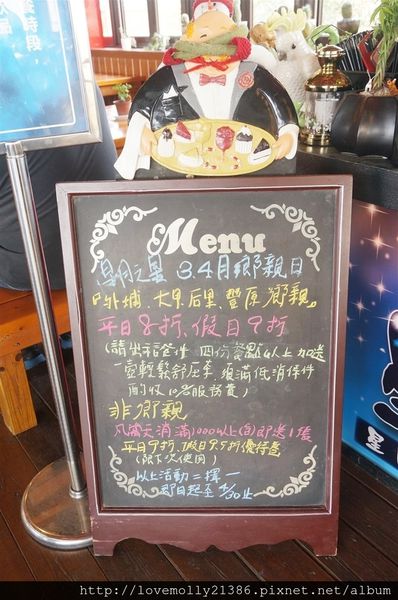 餐時段,
Menu
星月之星 3.4月鄉親日
『外埔、大甲、后里、豐原鄉親』
平日8折、假日9折
(請出示證件 四份餐點以上加送
一壺輕鬆舒壓茶 須滿低消條件
酌收10%服務費)
非鄉親
凡當天消滿1000以上(含)即送1張
平日9折、假日9.5折優待卷
(限下次使用)
以上活動二擇一
即日起至4/30止
星
http://lovemolly21386.pixnet.net/album